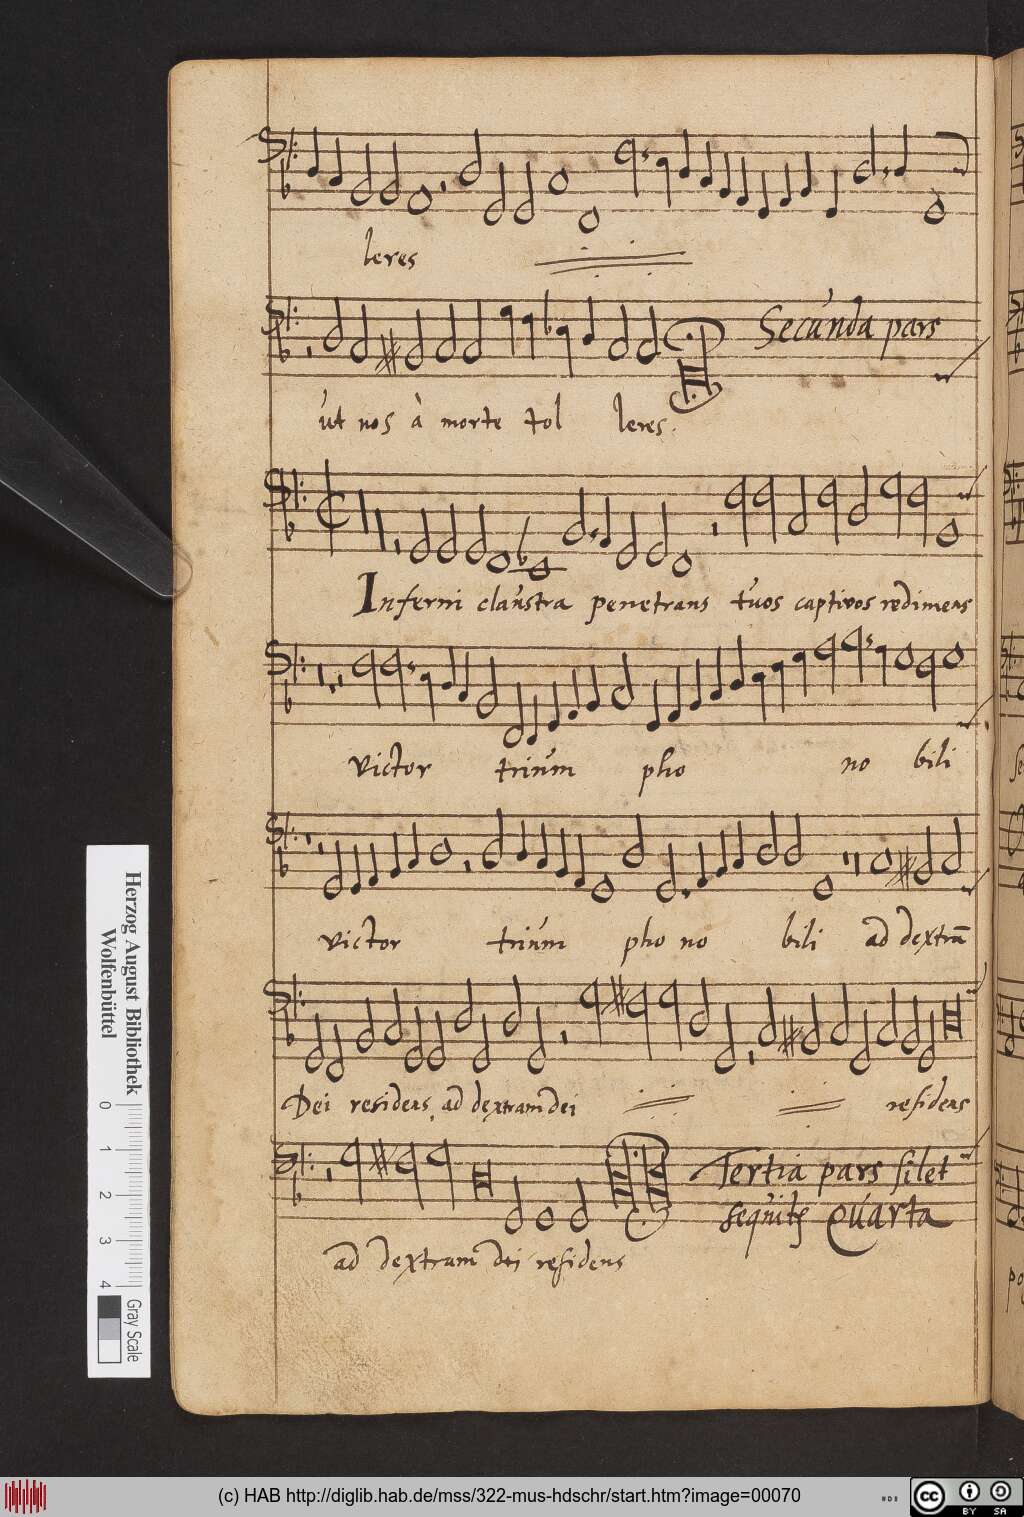 leres
Secunda pars
ut nos à morte tol leres.
Inferni claustra penetrans tuos captivos redimens
victor trium pho no bili
victor trium pho no bili ad dextrā
Dei residens ad dextram dei residens
Tertia pars silet
sequitꝭ Quarta
ad dextram dei residens
Herzog August Bibliothek
Wolfenbüttel
0 1 2 3 4
Gray Scale
(c) HAB http://diglib.hab.de/mss/322-mus-hdschr/start.htm?image=00070
cc BY SA